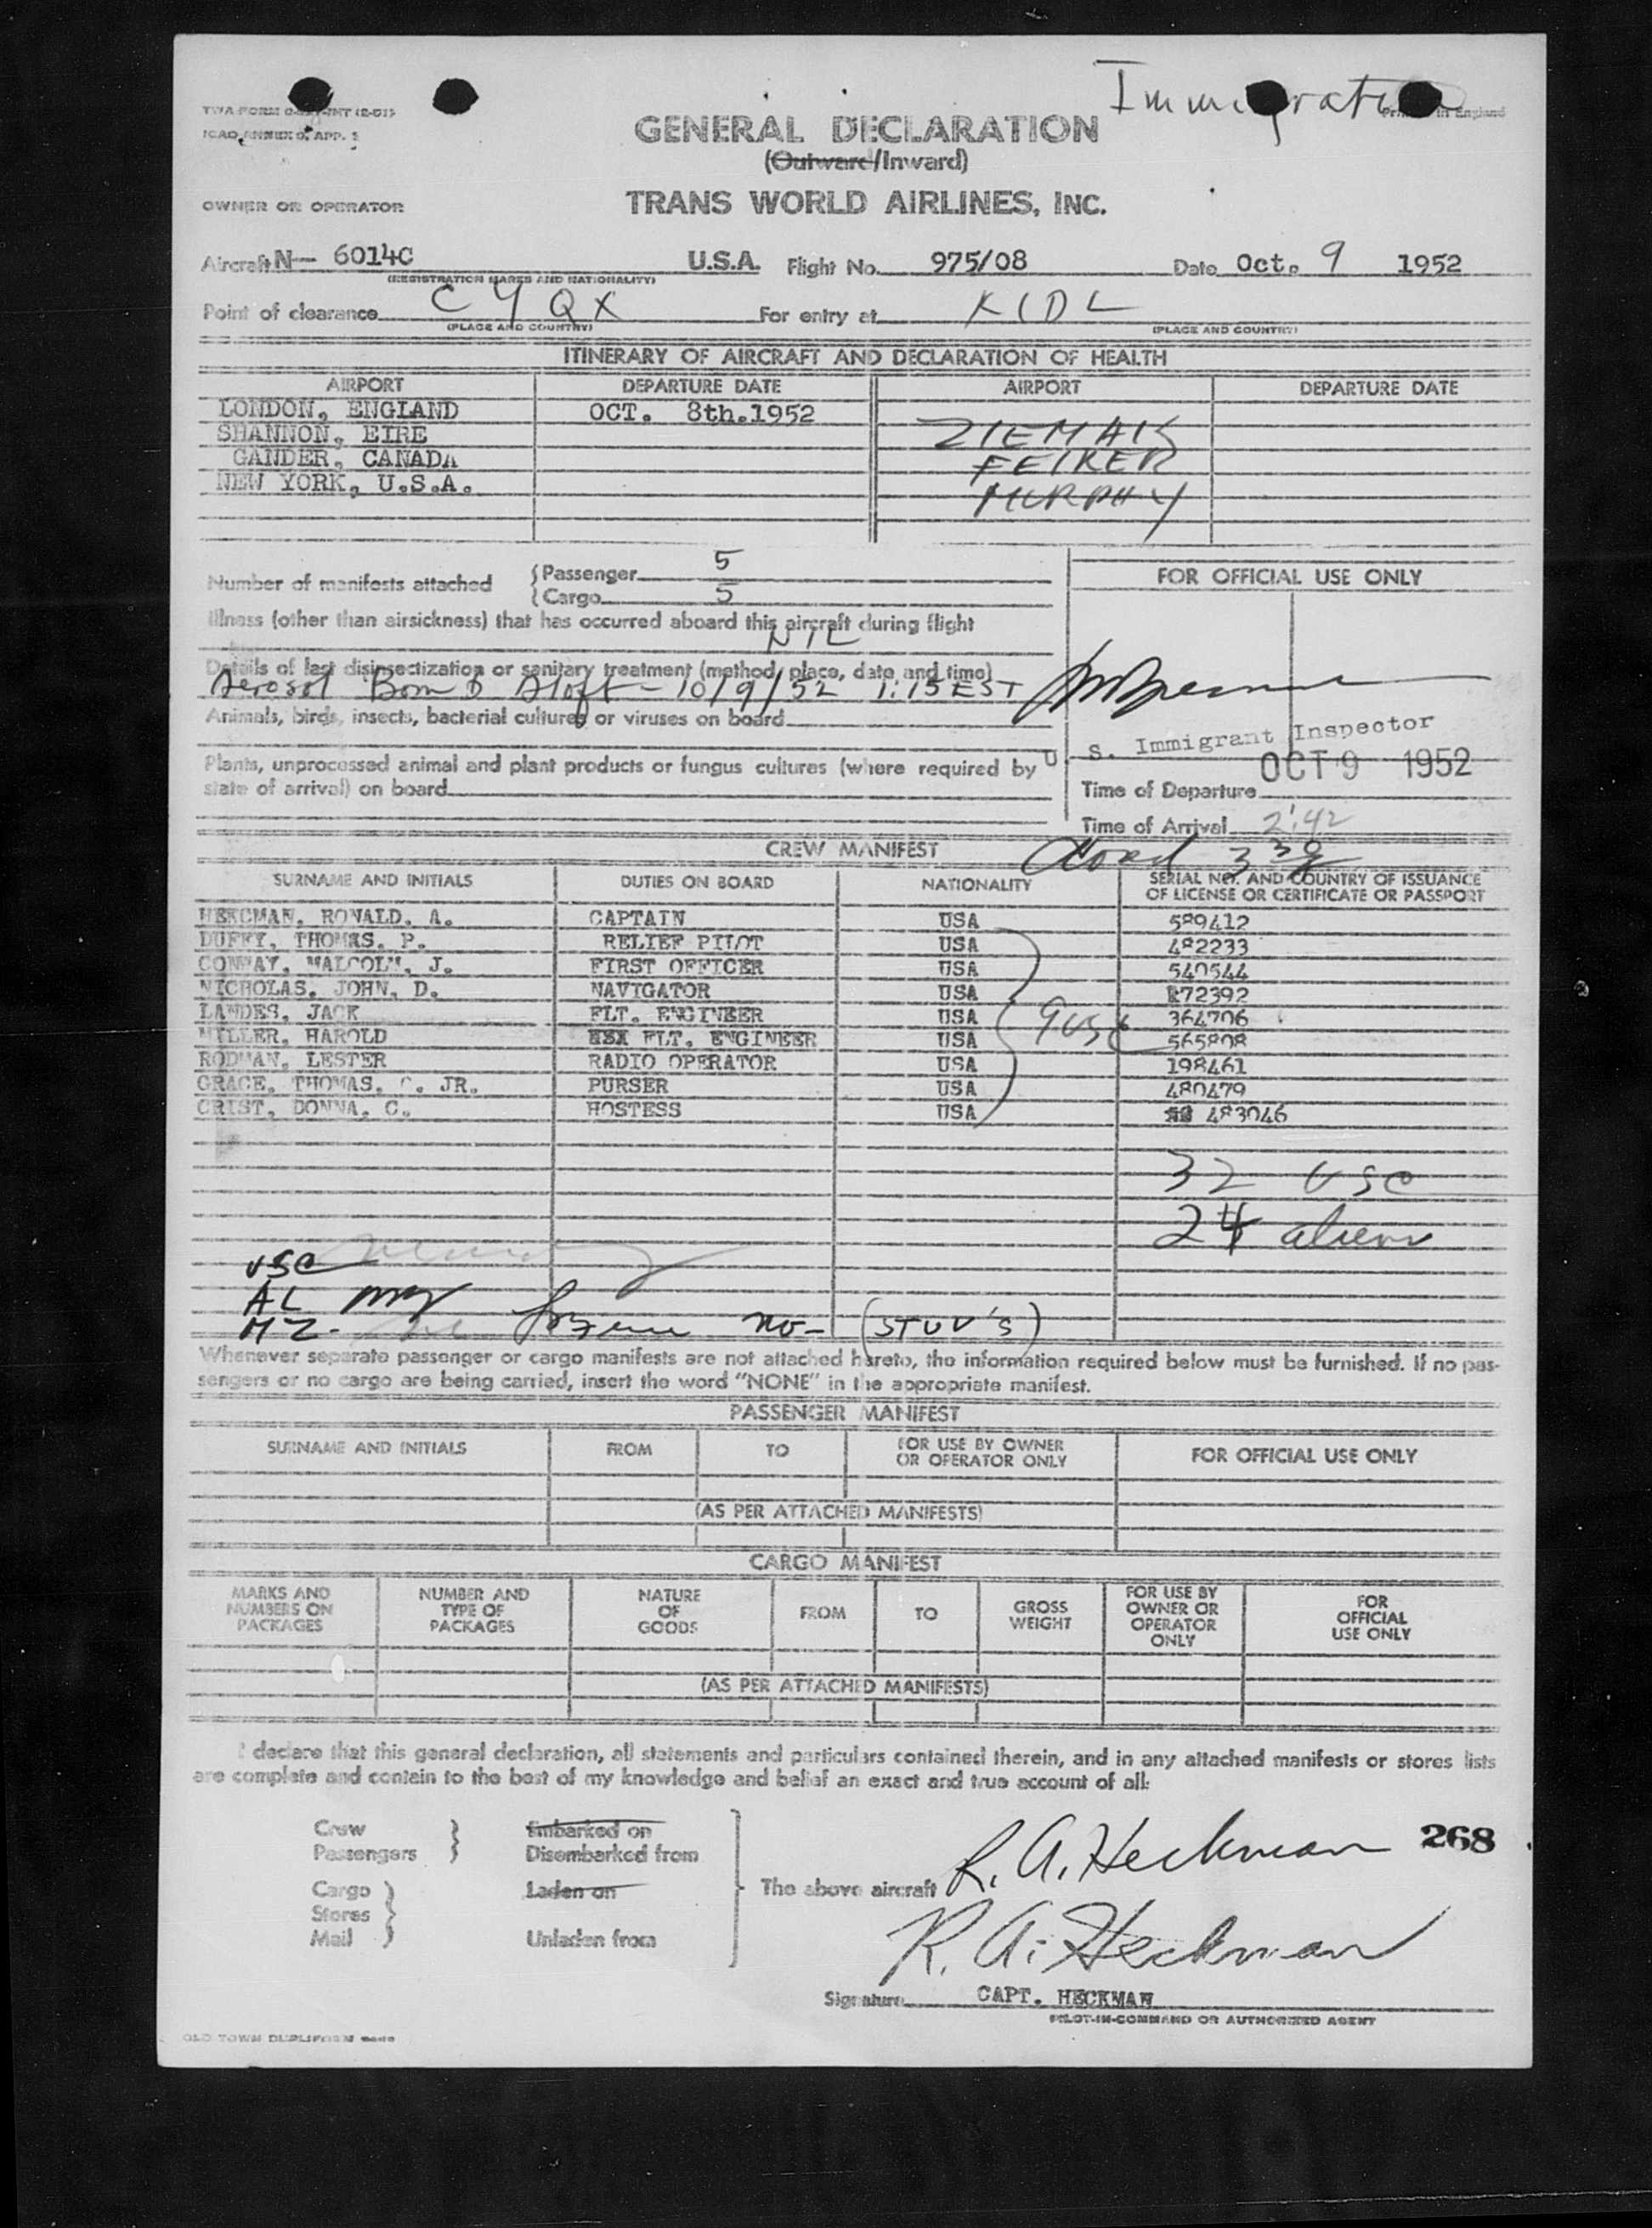 Immigration
TWA FORM
ICAO ANNEX 9, APP. 1
Printed in England
GENERAL DECLARATION
(Outward/Inward)
TRANS WORLD AIRLINES, INC.
OWNER OR OPERATOR
Aircraft N— 6014C U.S.A. Flight No. 975/08 Date Oct. 9 1952
(REGISTRATION MARKS AND NATIONALITY)
Point of clearance CYQX For entry at KIDL
(PLACE AND COUNTRY) (PLACE AND COUNTRY)
ITINERARY OF AIRCRAFT AND DECLARATION OF HEALTH
AIRPORT DEPARTURE DATE AIRPORT DEPARTURE DATE
LONDON, ENGLAND OCT. 8th.1952
SHANNON, EIRE ZIEMAK
GANDER, CANADA FEIKER
NEW YORK, U.S.A. MURPHY
Number of manifests attached {Passenger 5
{Cargo 5
FOR OFFICIAL USE ONLY
Illness (other than airsickness) that has occurred aboard this aircraft during flight
NIL
Details of last disinsectization or sanitary treatment (method, place, date and time)
Aerosol Bomb Aloft - 10/9/52 1:15 EST
Animals, birds, insects, bacterial cultures or viruses on board
U. S. Immigrant Inspector
Plants, unprocessed animal and plant products or fungus cultures (where required by
state of arrival) on board
OCT 9 1952
Time of Departure
Time of Arrival 2:42
CREW MANIFEST
SURNAME AND INITIALS DUTIES ON BOARD NATIONALITY SERIAL NO. AND COUNTRY OF ISSUANCE
OF LICENSE OR CERTIFICATE OR PASSPORT
HEKCMAN, RONALD, A. CAPTAIN USA 589412
DUFFY, THOMAS, P. RELIEF PILOT USA 482233
CONWAY, MALCOLM, J. FIRST OFFICER USA 540544
NICHOLAS, JOHN, D. NAVIGATOR USA 172392
LANDES, JACK FLT. ENGINEER USA 364706
MILLER, HAROLD FLT. ENGINEER USA 565808
RODMAN, LESTER RADIO OPERATOR USA 198461
GRACE, THOMAS, C. JR. PURSER USA 480479
CRIST, DONNA, C. HOSTESS USA 483046
9 USC
32 USC
24 aliens
USC
AL
MZ. no- (STUV'S)
Whenever separate passenger or cargo manifests are not attached hereto, the information required below must be furnished. If no pas-
sengers or no cargo are being carried, insert the word "NONE" in the appropriate manifest.
PASSENGER MANIFEST
SURNAME AND INITIALS FROM TO FOR USE BY OWNER
OR OPERATOR ONLY FOR OFFICIAL USE ONLY
(AS PER ATTACHED MANIFESTS)
CARGO MANIFEST
MARKS AND
NUMBERS ON
PACKAGES
NUMBER AND
TYPE OF
PACKAGES
NATURE
OF
GOODS
FROM
TO
GROSS
WEIGHT
FOR USE BY
OWNER OR
OPERATOR
ONLY
FOR
OFFICIAL
USE ONLY
(AS PER ATTACHED MANIFESTS)
I declare that this general declaration, all statements and particulars contained therein, and in any attached manifests or stores lists
are complete and contain to the best of my knowledge and belief an exact and true account of all:
Crew Embarked on
Passengers Disembarked from
Cargo Laden on
Stores
Mail Unladen from
The above aircraft R. A. Heckman
268
R. A. Heckman
Signature CAPT. HECKMAN
PILOT-IN-COMMAND OR AUTHORIZED AGENT
OLD TOWN DUPLIFORM